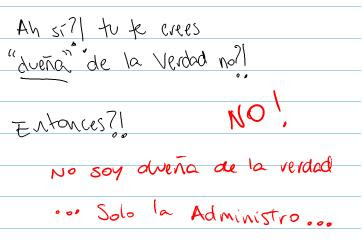 Ah sí?! tu te crees
"dueña" de la verdad no?!
NO!
Entonces?!
No soy dueña de la verdad
... Solo la Administro...